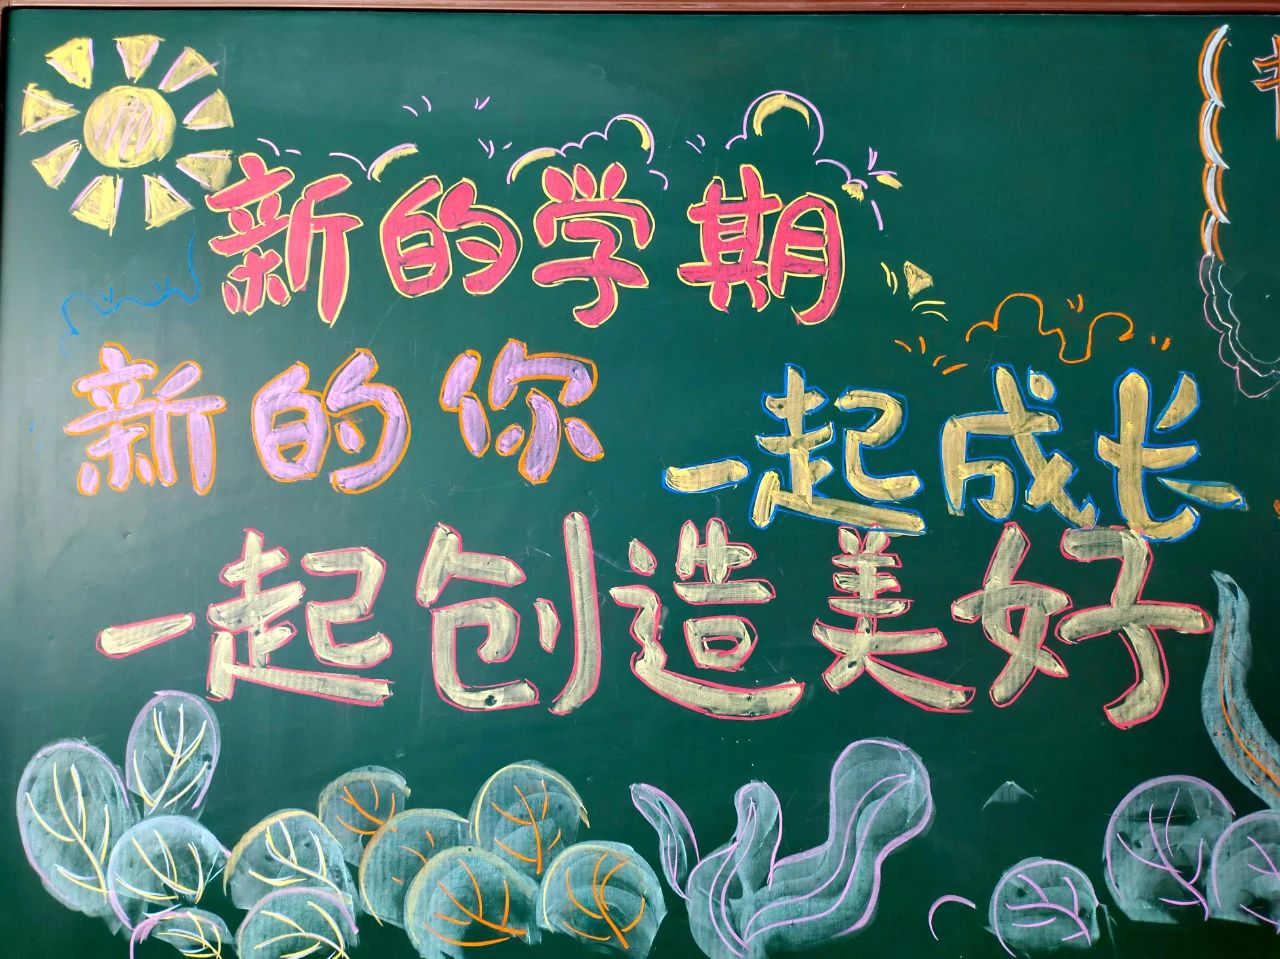 新的学期
新的你
一起成长
一起创造美好